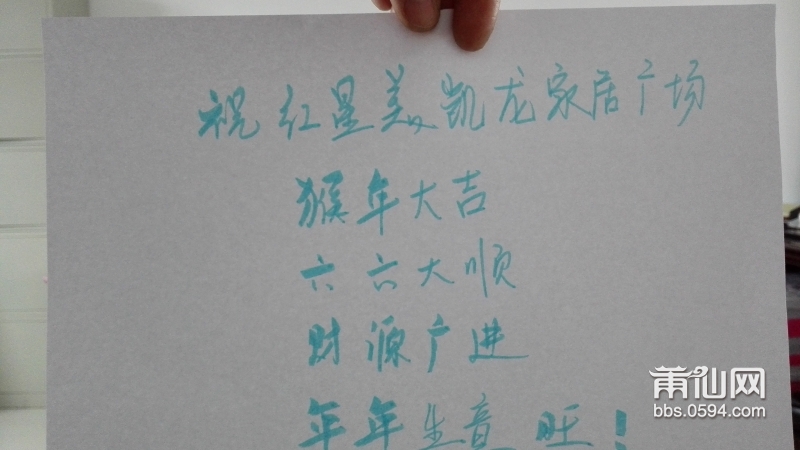 祝红星美凯龙家居广场
猴年大吉
六六大顺
财源广进
年年生意旺!
莆仙网
bbs.0594.com